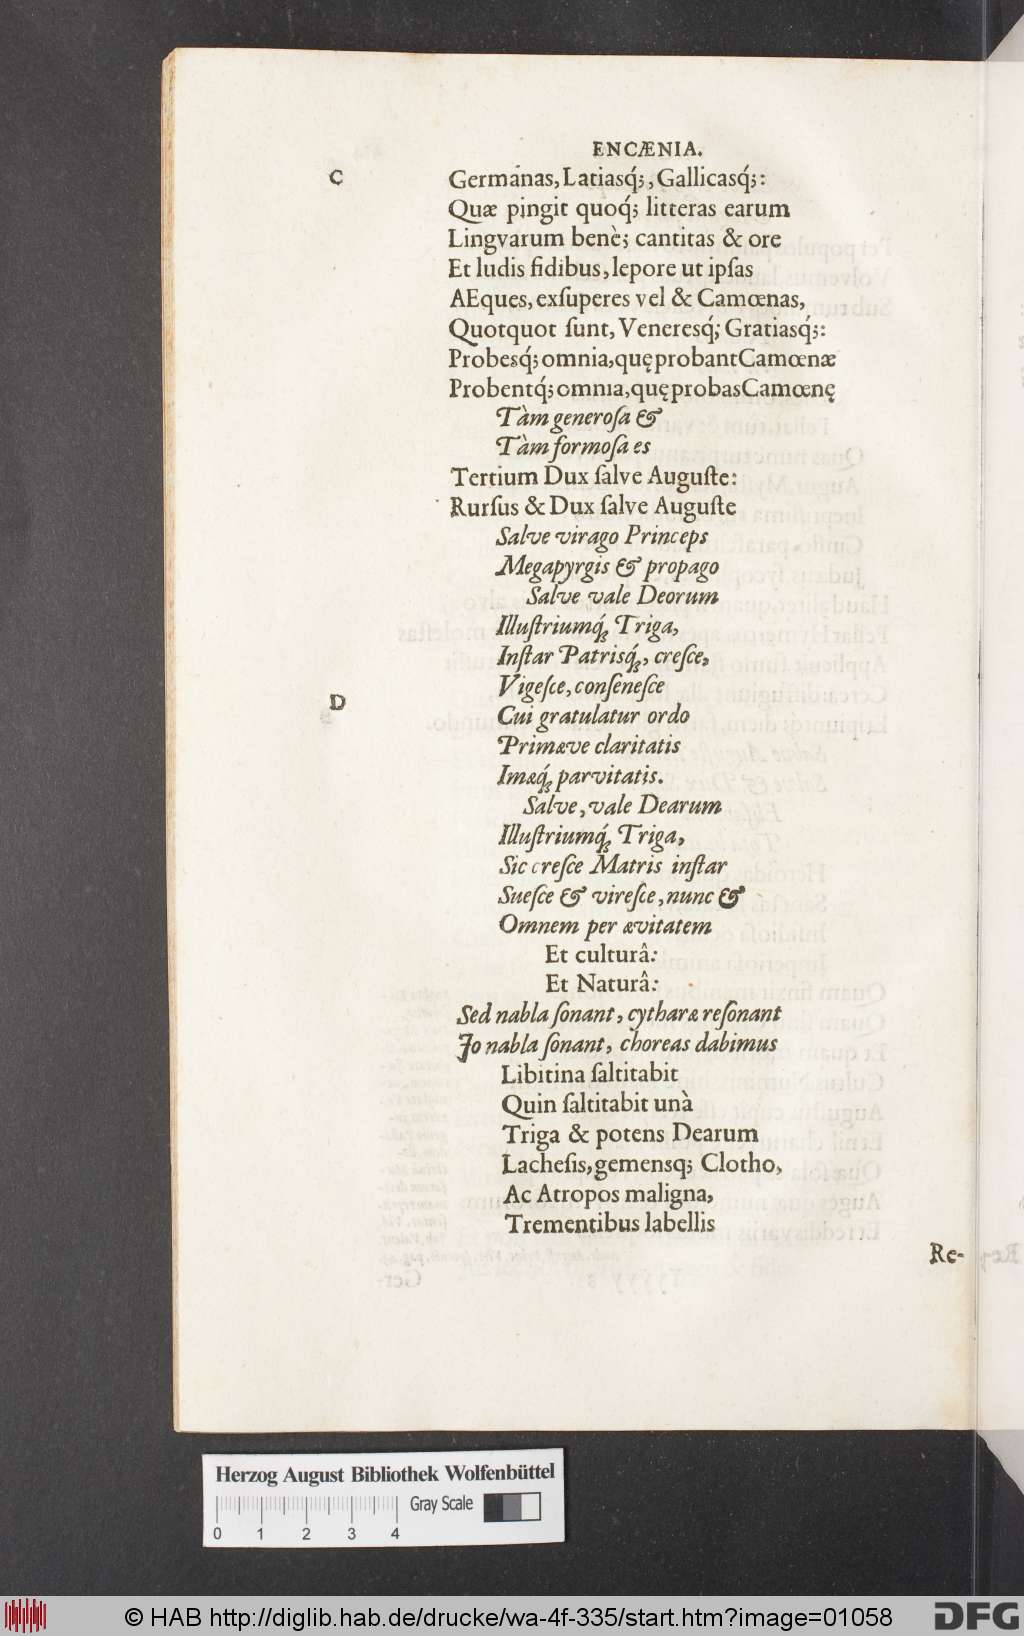 ENCÆNIA.
C
Germanas, Latiasq́;, Gallicasq́;:
Quæ pingit quoq́; litteras earum
Lingvarum benè; cantitas & ore
Et ludis fidibus, lepore ut ipſas
AEques, exſuperes vel & Camœnas,
Quotquot ſunt, Veneresq́; Gratiasq́;:
Probesq́; omnia, quę probant Camœnæ
Probentq́; omnia, quę probas Camœnę
Tàm generoſa &
Tàm formoſa es
Tertium Dux ſalve Auguſte:
Rurſus & Dux ſalve Auguſte
Salve virago Princeps
Megapyrgis & propago
Salve vale Deorum
Illuſtriumq́; Triga,
Inſtar Patrisq́;, creſce,
Vigeſce, conſeneſce
D
Cui gratulatur ordo
Primæve claritatis
Imæq́; parvitatis.
Salve, vale Dearum
Illuſtriumq́; Triga,
Sic creſce Matris inſtar
Sueſce & vireſce, nunc &
Omnem per ævitatem
Et culturâ:
Et Naturâ:
Sed nabla ſonant, cytharæ reſonant
Jo nabla ſonant, choreas dabimus
Libitina ſaltitabit
Quin ſaltitabit unà
Triga & potens Dearum
Lacheſis, gemensq; Clotho,
Ac Atropos maligna,
Trementibus labellis
Re-
Herzog August Bibliothek Wolfenbüttel
Gray Scale
0 1 2 3 4
© HAB http://diglib.hab.de/drucke/wa-4f-335/start.htm?image=01058
DFG